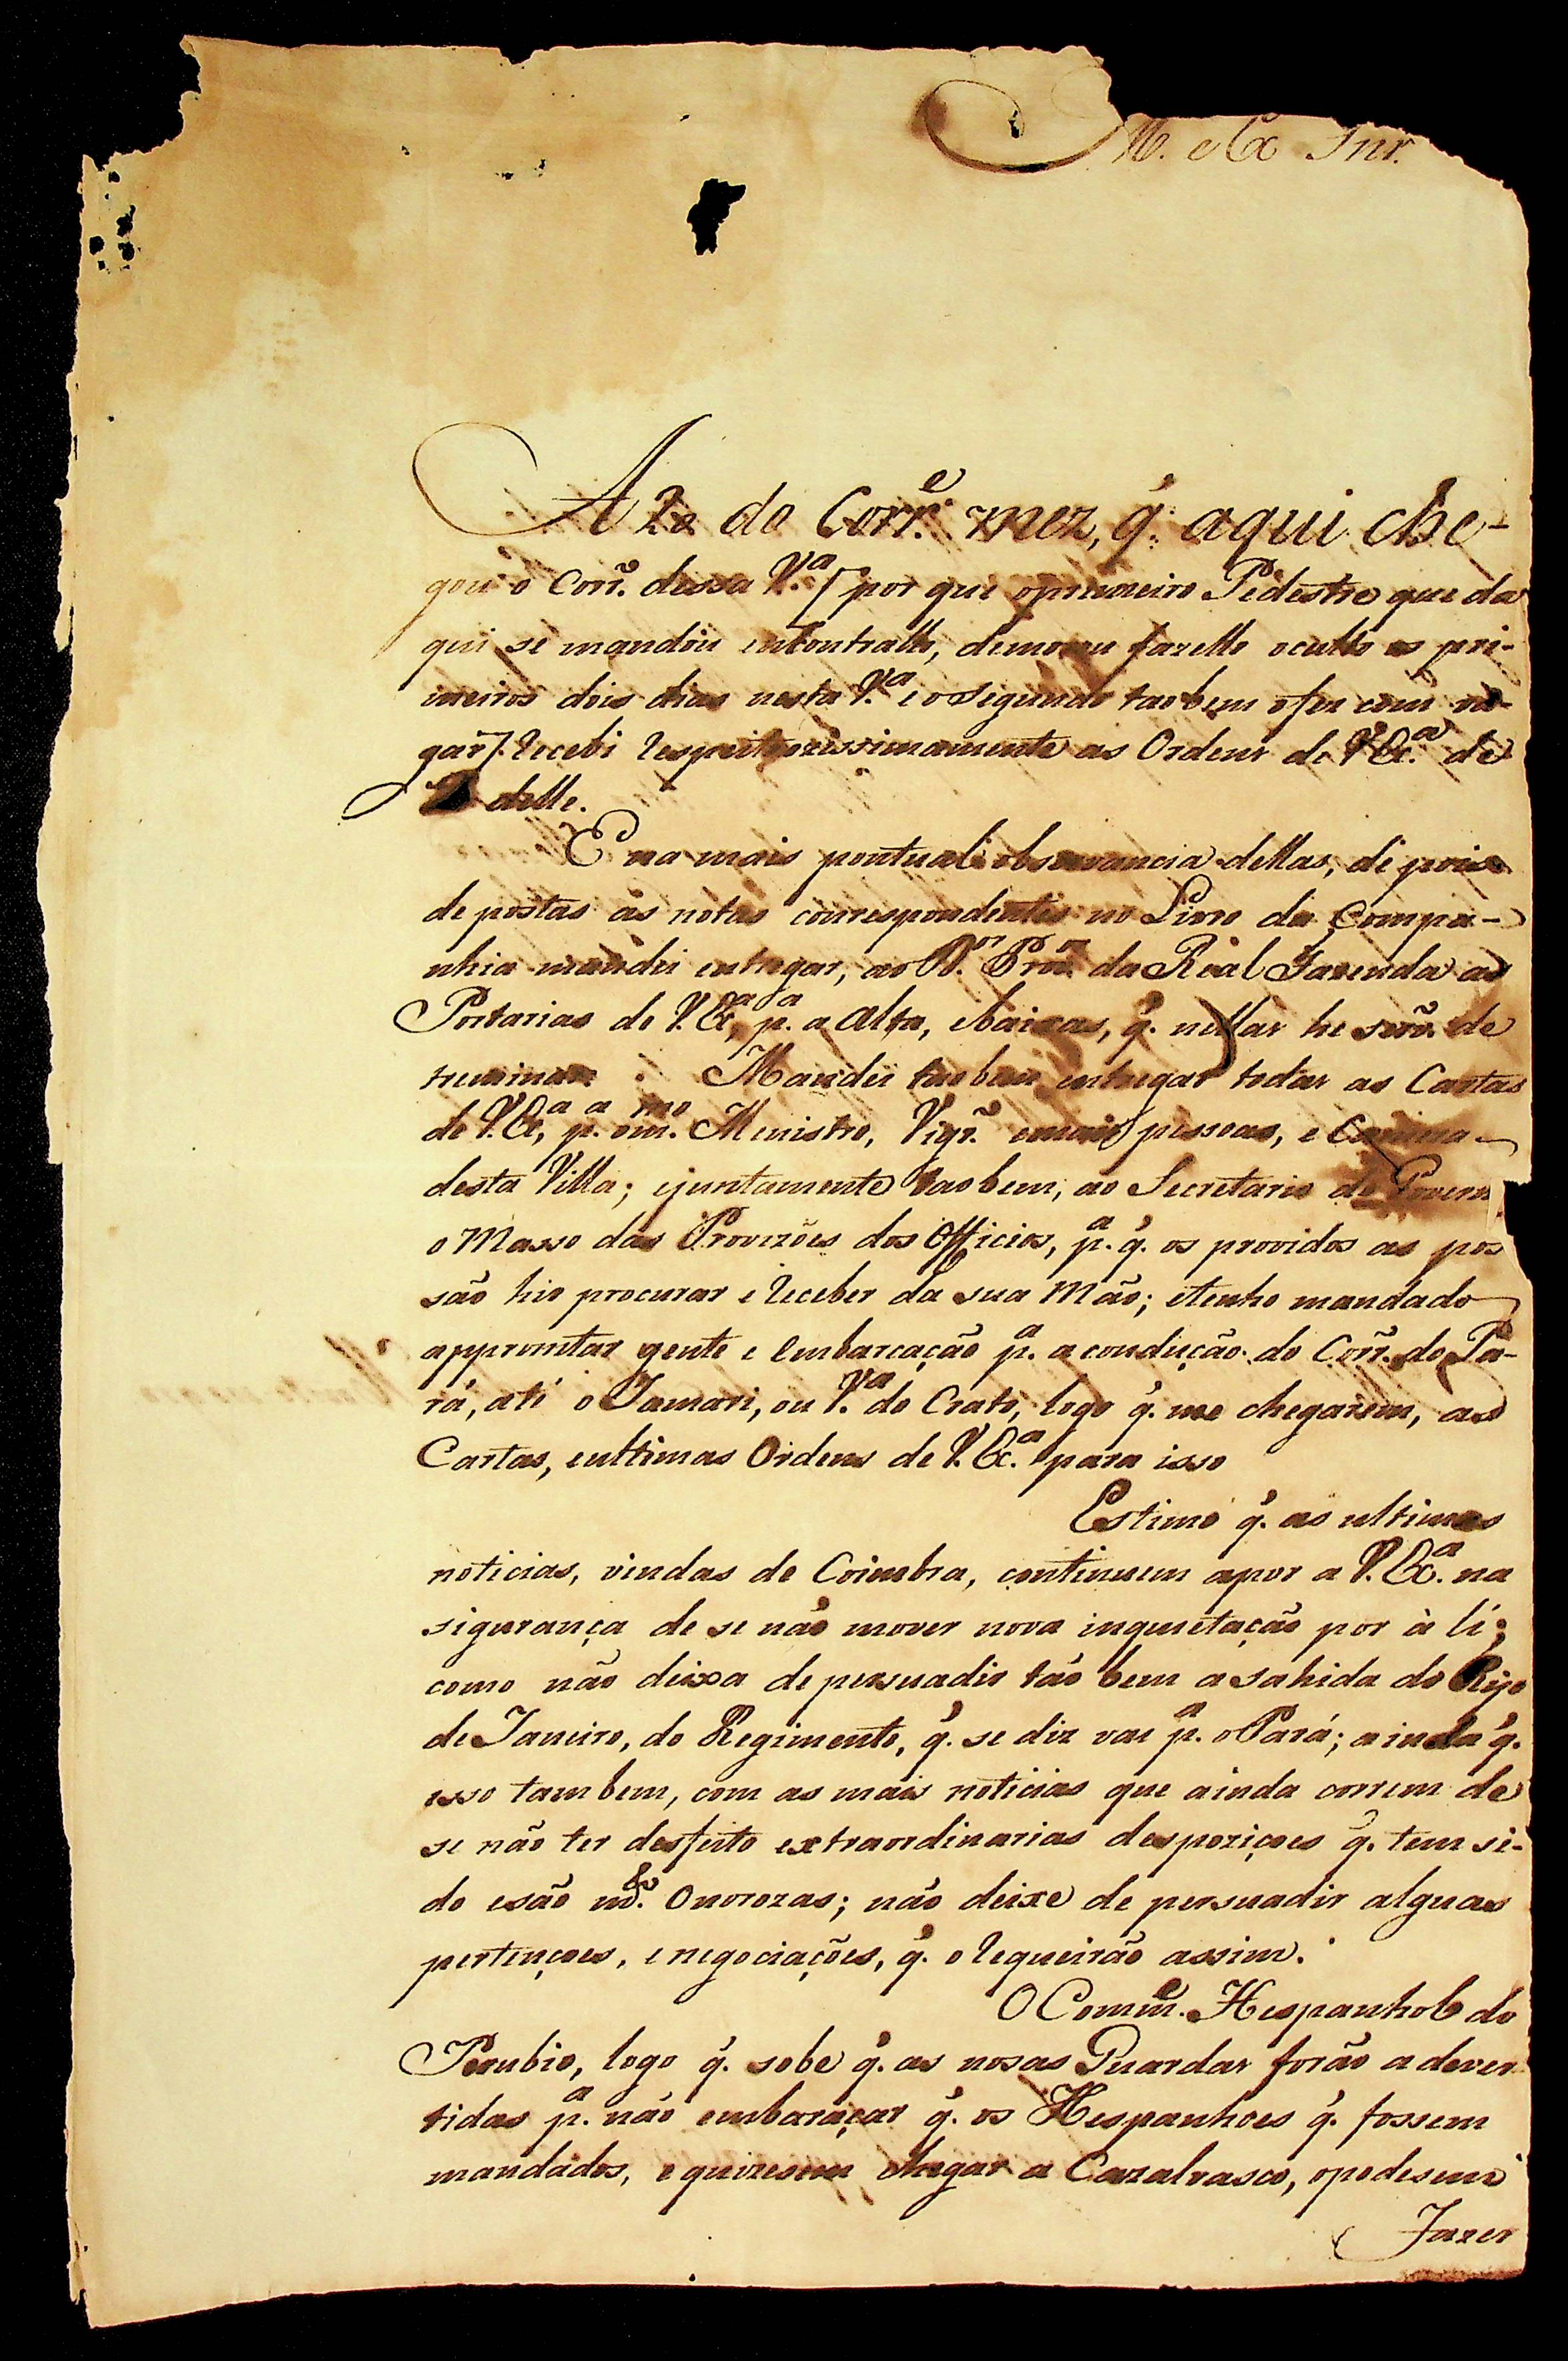 Ill. e Ex Snr.
A 22 do Corr.e mez, q̃. aqui che-
gou o Corr.º dessa V.ª [por que oprimeiro Pedestre que da
qui se mandou encontrallo, demorou fazello oculto os pri-
meiros dois dias nesta V.ª e o segundo taobem ofez com va-
gar]. Recebi Respeitozissimamente as Ordens de V. Ex.ª de
delle.
E na mais pontual observancia dellas, de pois
de postas as notas correspondentes no Livro da Compa-
nhia mandei entregar, ao D.or Prov.or da Real Fazenda as
Portarias de V. Ex.ª, p.ª a Alta, eBaixas, q̃. nellas he serv.º de
treminar. Mandei taobem entregar todas as Cartas
de V. Ex.ª, p.ª om.mo Menistro, Vigr.º emais pessoas, e Camera
desta Villa; ejuntamente taobem, ao Secretario do Govern
o Masso das Provizões dos Officios, p.ª q̃. os providos as pos
são hir procurar e Receber da sua Mão; etenho mandado
appromtar gente e Embarcação p.ª a condução do Corr.º do Pa-
rá, até o Jamari, ou V.ª do Crato, logo q̃. me chegarem, as
Cartas, eulttimas Ordens de V. Ex.ª para isso
Estimo q̃. as ultimas
noticias, vindas de Coimbra, continuem apor a V. Ex.ª na
sigurança de se não mover nova inquietação por à li;
como não deixa de persuadir tão bem a sahida do Rijo
de Janeiro, do Regimento, q̃. se diz vai p.ª o Pará; ainda q̃.
isso tambem, com as mais noticias que ainda correm de
se não ter desfeito extraordinarias despoziçoes q̃. tem si-
do esão m.to Onorozas; não deixe de persuadir alguas
pertençoes, e negociações, q̃. o Requeirão assim.
O Comm.e Hespanhol do
Perubio, logo q̃. sobe q̃. as nosas Guardas forão adever
tidas p.ª não embaraçar q̃. os Hespanhoes q̃. fossem
mandados, e quizesem chegar a Cazalvasco, opodesem
Fazer